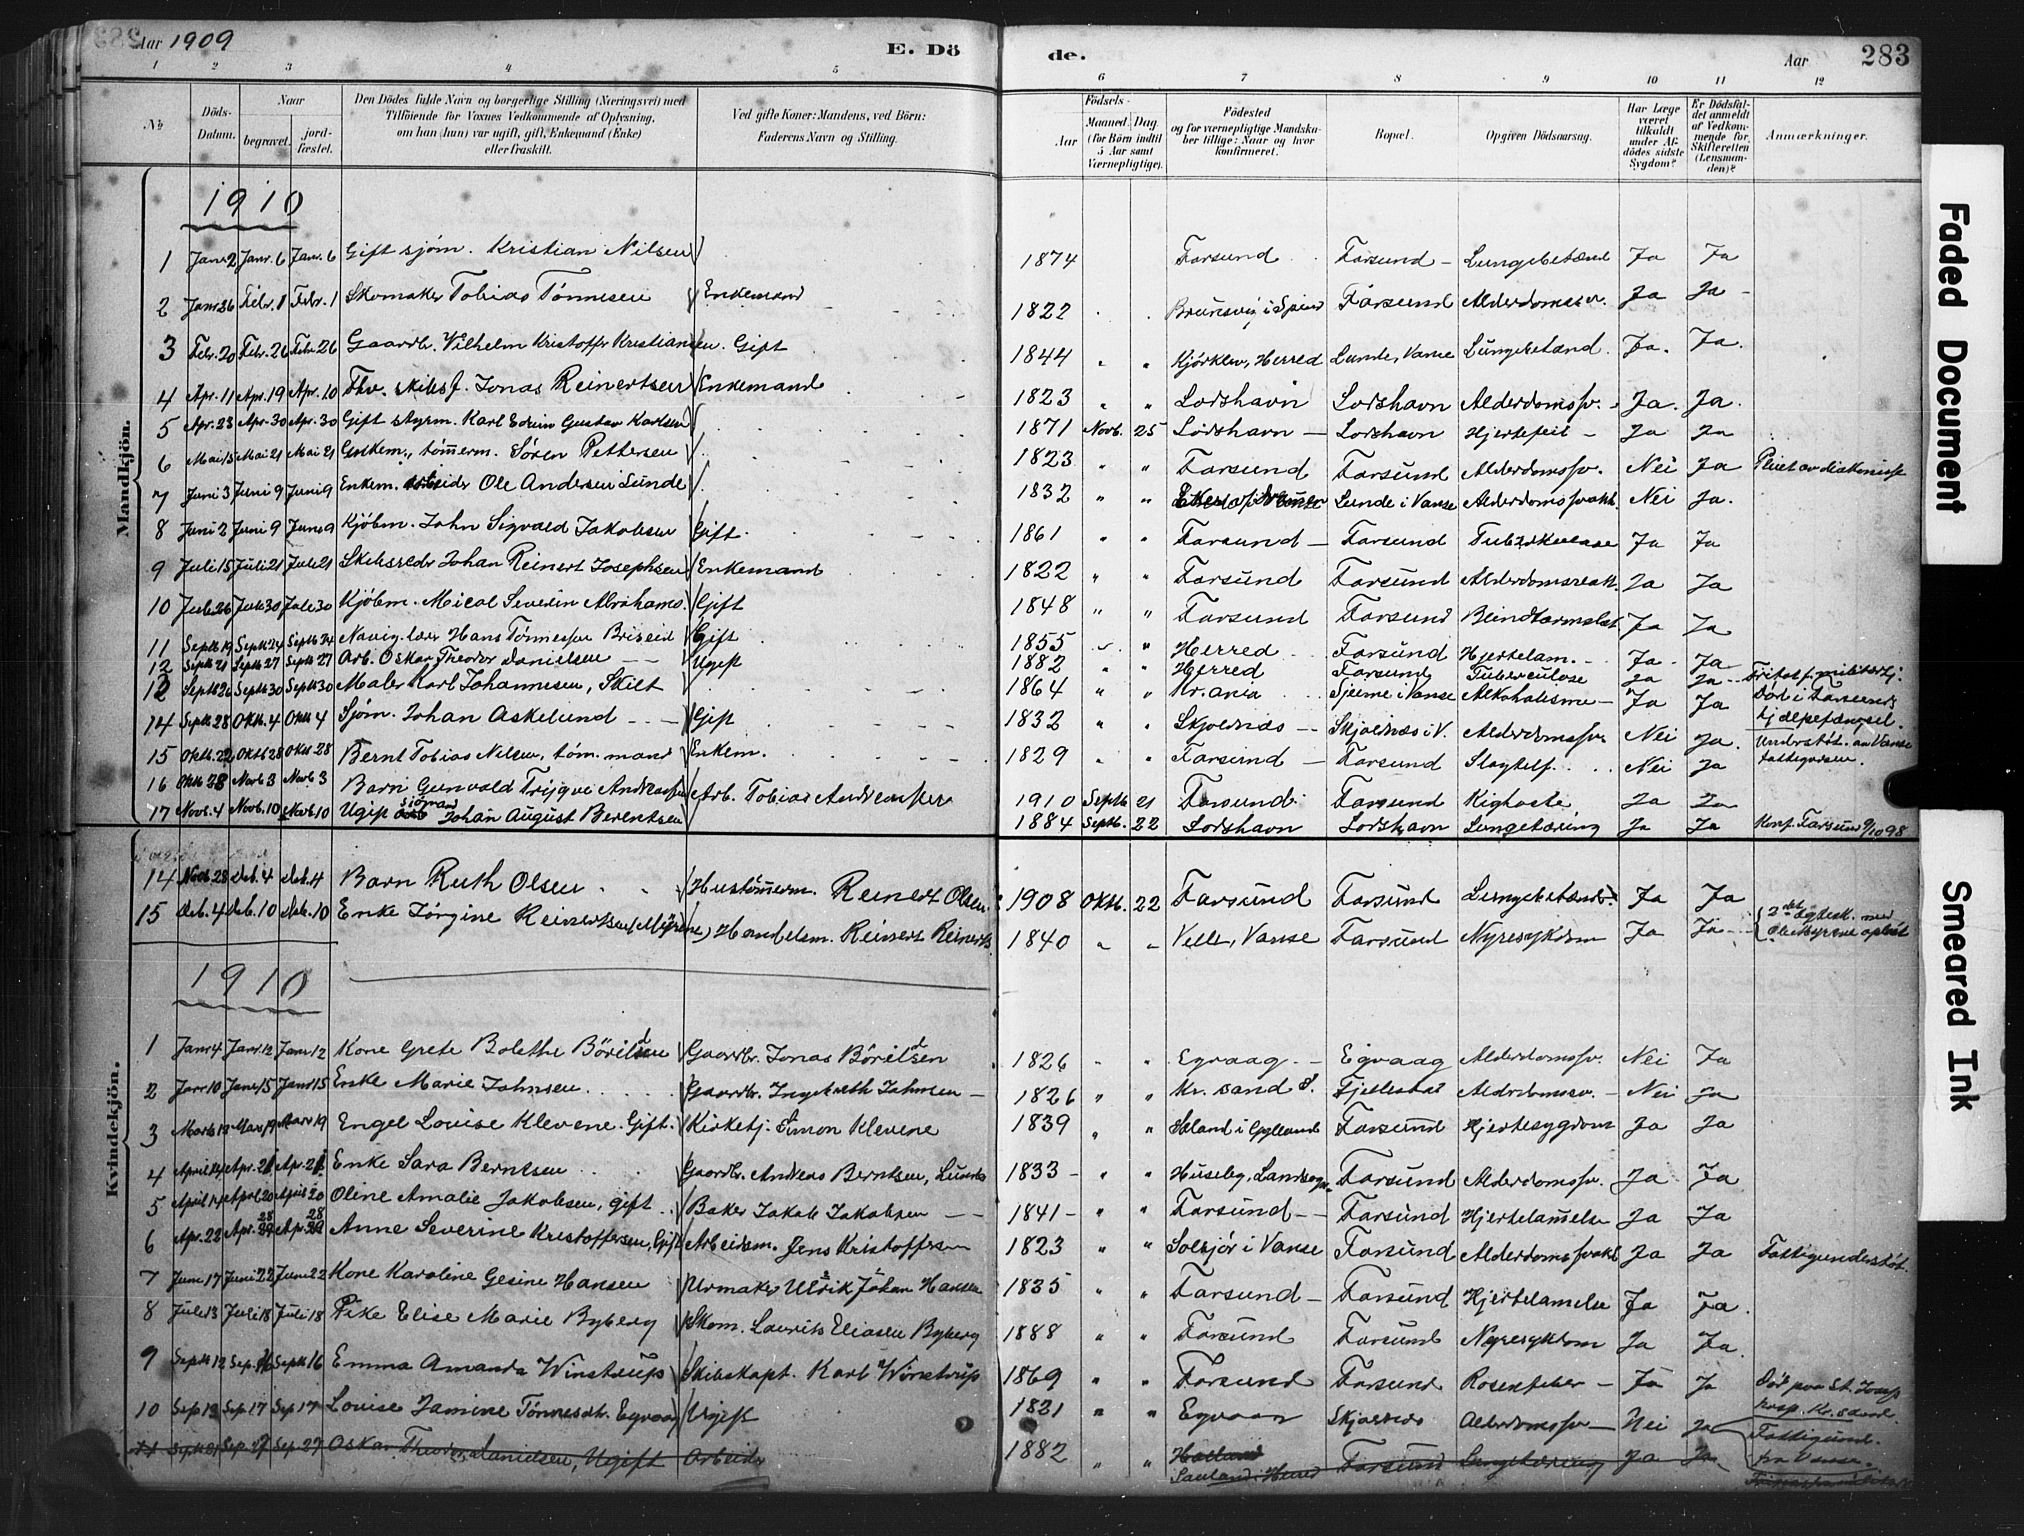 Aar 1909
E. Dö
de.
Aar
283
1 2 3 4 5 6 7 8 9 10 11 12
No
Döds-Datum.
Naar
begravet.
jord-fæstet.
Den Dödes fulde Navn og borgerlige Stilling (Næringsvei) med Tilföiende for Voxnes Vedkommende af Oplysning, om han (hun) var ugift, gift, Enkemand (Enke) eller fraskilt.
Ved gifte Koner: Mandens, ved Börn: Faderens Navn og Stilling.
Födsels-
Aar
Maaned. Dag
(for Börn indtil 5 Aar samt Værnepligtige).
Födested
og for værnepligtige Mandskaber tillige: Naar og hvor konfirmeret.
Bopæl.
Opgiven Dödsaarsag.
Har Læge været tilkaldt under Afdödes sidste Sygdom?
Er Dödsfaldet anmeldt af Vedkommende for Skifteretten (Lensmanden)?
Anmærkninger.
Mandkjön.
1910
1 Janr 2 Janr. 6 Janr. 6 Gift sjøm. Kristian Nilsen 1874 Farsund Farsund Lungebetænd Ja Ja
2 Janr 26 Febr. 1 Febr. 1 Skomaker Tobias Tønnesen Enkemand 1822 Brunsvig i Spind Farsund Ja Ja
3 Febr. 20 Febr. 26 Febr. 26 Gaardb. Vilhelm Kristoffr Kristiansen. Gift 1844 Herred Lunde, Vanse Lungebetænd. Ja. Ja.
4 Apr. 11 Apr. 19 Apr. 10 Fhv. skibsf. Jonas Reinertsen Enkemand 1823 Loshavn Loshavn Alderdomssv. Ja. Ja.
5 Apr. 23 Apr. 30 Apr. 30 Gift styrm. Karl Edvin Gustav Karlsen 1871 Novb. 25 Loshavn Loshavn Hjertefeil Ja Ja
6 Mai 15 Mai 21 Mai 21 Enkem., tømmerm. Søren Pettersen 1823 Farsund Farsund Alderdomssv. Nei Ja Pleiet av diakonisse
7 Juni 3 Juni 9 Juni 9 Enkem. arbeider Ole Andersen Lunde 1832 Lunde i Vanse Alderdomssvakh. Nei Ja.
8 Juni 2 Juni 9 Juni 9 Kjøbm. John Sigvald Jakobsen Gift 1861 Farsund Farsund Tuberkulose Ja Ja
9 Juli 15 Juli 21 Juli 21 Skibsreder Johan Reinert Josephsen Enkemand 1822 Farsund Farsund Ja Ja
10 Juli 26 Juli 30 Juli 30 Kjøbm. Mical Severin Abrahams. Gift 1848 Farsund Farsund Blindtarmsbet. Ja Ja
11 Septb 19 Septb 24 Septb 24 Navig. lærer Hans Tønnessen Briseid Gift 1855 Herred Farsund Hjertelam. Ja Ja
12 Septb 21 Septb 27 Septb 27 Arb. Oskar Theodor Danielsen Ugift 1882 Herred Farsund Tuberculose Ja Ja
12 Septb 26 Septb 30 Septb 30 Maler Karl Johannesen, Skilt 1864 Kr.ania i Vanse Alkoholisme Ja Ja Død i Farsunds hjelpefængsel.
14 Septb 28 Oktb. 4 Oktb 4 Sjøm. Johan Askelund Gift 1832 Skjolnæs Skjolnæs i V. Alderdomssv. Nei Ja. Understøt. av Vanse fattigvæsen.
15 Oktb. 22 Oktb 28 Oktb 28 Bernt Tobias Nilsen, tøm.mand Enkem. 1829 Farsund Farsund Slagtilf. Nei Ja
16 Oktb 28 Novb 3 Novb 3 Barn Gunvald Trygve Andreassen Arb. Tobias Andreassen 1910 Septb 21 Farsund Farsund Kighoste Ja Ja
17 Novb. 4 Novb. 10 Novb 10 Ugift sjømand Johan August Berentsen 1884 Septb. 22 Loshavn Loshavn Lungetæring Ja Ja Konf. Farsund 9/10 98
14 Novb 28 Deb. 4 Deb. 4 Barn Ruth Olsen Hustømmerm. Reinert Olsen 1908 Oktb. 22 Farsund Farsund Lungebetænd. Ja Ja
15 Deb. 4 Deb. 10 Deb. 10 Enke Jørgine Reinertsen (Myrene) Handelsm. Reinert Reinerts 1840 Velle, Vanse Farsund Nyresykdom Ja Ja 2det egtesk. med Ole Myrene opløst
1910
Kvindekjön.
1 Janr 4 Janr 12 Janr 12 Kone Grete Bolethe Børildsen Gaardbr. Jonas Børildsen 1826 Egvaag Egvaag Alderdomssv. Nei Ja
2 Janr 10 Janr 15 Janr 15 Enke Marie Johnsen Gaardbr. Ingebreth Johnsen 1826 Kr. sand S. Fjellestad Nei Ja
3 Marts 13 Mars 19 Mars 19 Engel Louise Klevene. Gift. Kirketj. Simon Klevene 1839 Farsund Hjertesygdom Ja Ja
4 April 14 Apr. 21 Apr. 21 Enke Sara Berntsen Gaardbr. Andreas Berntsen, Lunde 1833 Huseby, Farsund Alderdomssv. Ja Ja
5 April 14 April 20 April 20 Oline Amalie Jakobsen, gift Baker Jakob Jakobsen 1841 Farsund Farsund Hjertelammelse Ja Ja
6 Apr. 22 Apr. 28 Apr. 28 Anne Severine Kristoffersen, Gift Arbeidsm. Jens Kristoffersen 1823 i Vanse Farsund Alderdomssvakh Ja Ja Fattigunderstøt.
7 Juni 17 Juni 22 Juni 22 Kone Karoline Gesine Hansen Urmaker Ulrik Johan Hansen 1835 Farsund Farsund Hjertelamelse Ja Ja.
8 Juli 13 Juli 18 Juli 18 Pike Elise Marie Byberg Skom. Laurits Eliasen Byberg 1888 Farsund Farsund Nyresykdom Ja Ja.
9 Septb 12 Sep. 16 Septb 16 Emma Amanda Winstrup Skibskapt. Karl Winstrup 1869 Farsund Farsund Rosenfeber Ja Ja Død paa St. Josefs hosp. Kr.sand
10 Sep 12 Sep 17 Sep 17 Louise Jamine Tønnesdtr. Egvaag Ugift 1821 Egvaan Alderdomssv Nei Ja Fattigund. fra Vanse.
11 Septb 21 Sep. 27 Sep. 27 Oskar Theodor Danielsen, Ugift Arbeider 1882 Farsund Lungetæring Ja Ja
Faded Document
Smeared Ink